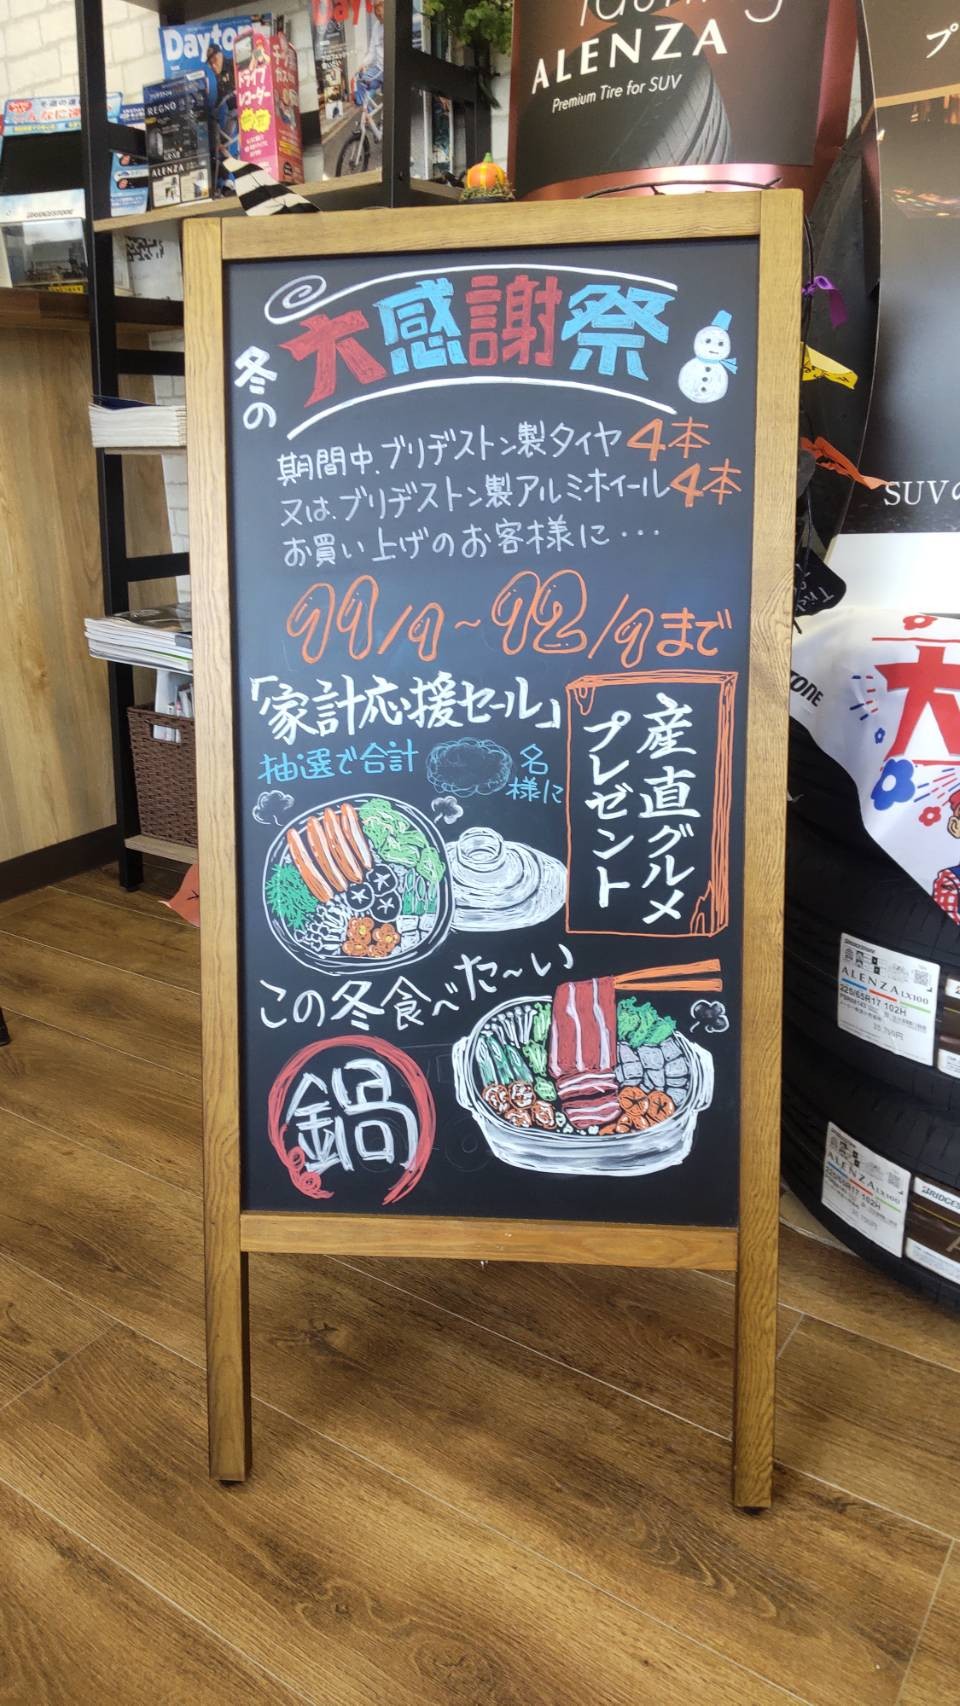 Dayton
Dayton
ドライブ
レコーダー
REGNO
ALENZA
んなに
BRIDGESTONE
ALENZA
Premium Tire for SUV
プ
冬の
大感謝祭
期間中、ブリヂストン製タイヤ4本
又は、ブリヂストン製アルミホイール4本
お買い上げのお客様に・・・
11/1~12/1まで
「家計応援セール」
抽選で合計 名
様に
産直グルメ
プレゼント
この冬食べた~い
鍋
SUVの
大
ALENZA LX100
225/65R17 102H
ALENZA LX100
225/65R17 102H
BRIDGESTONE